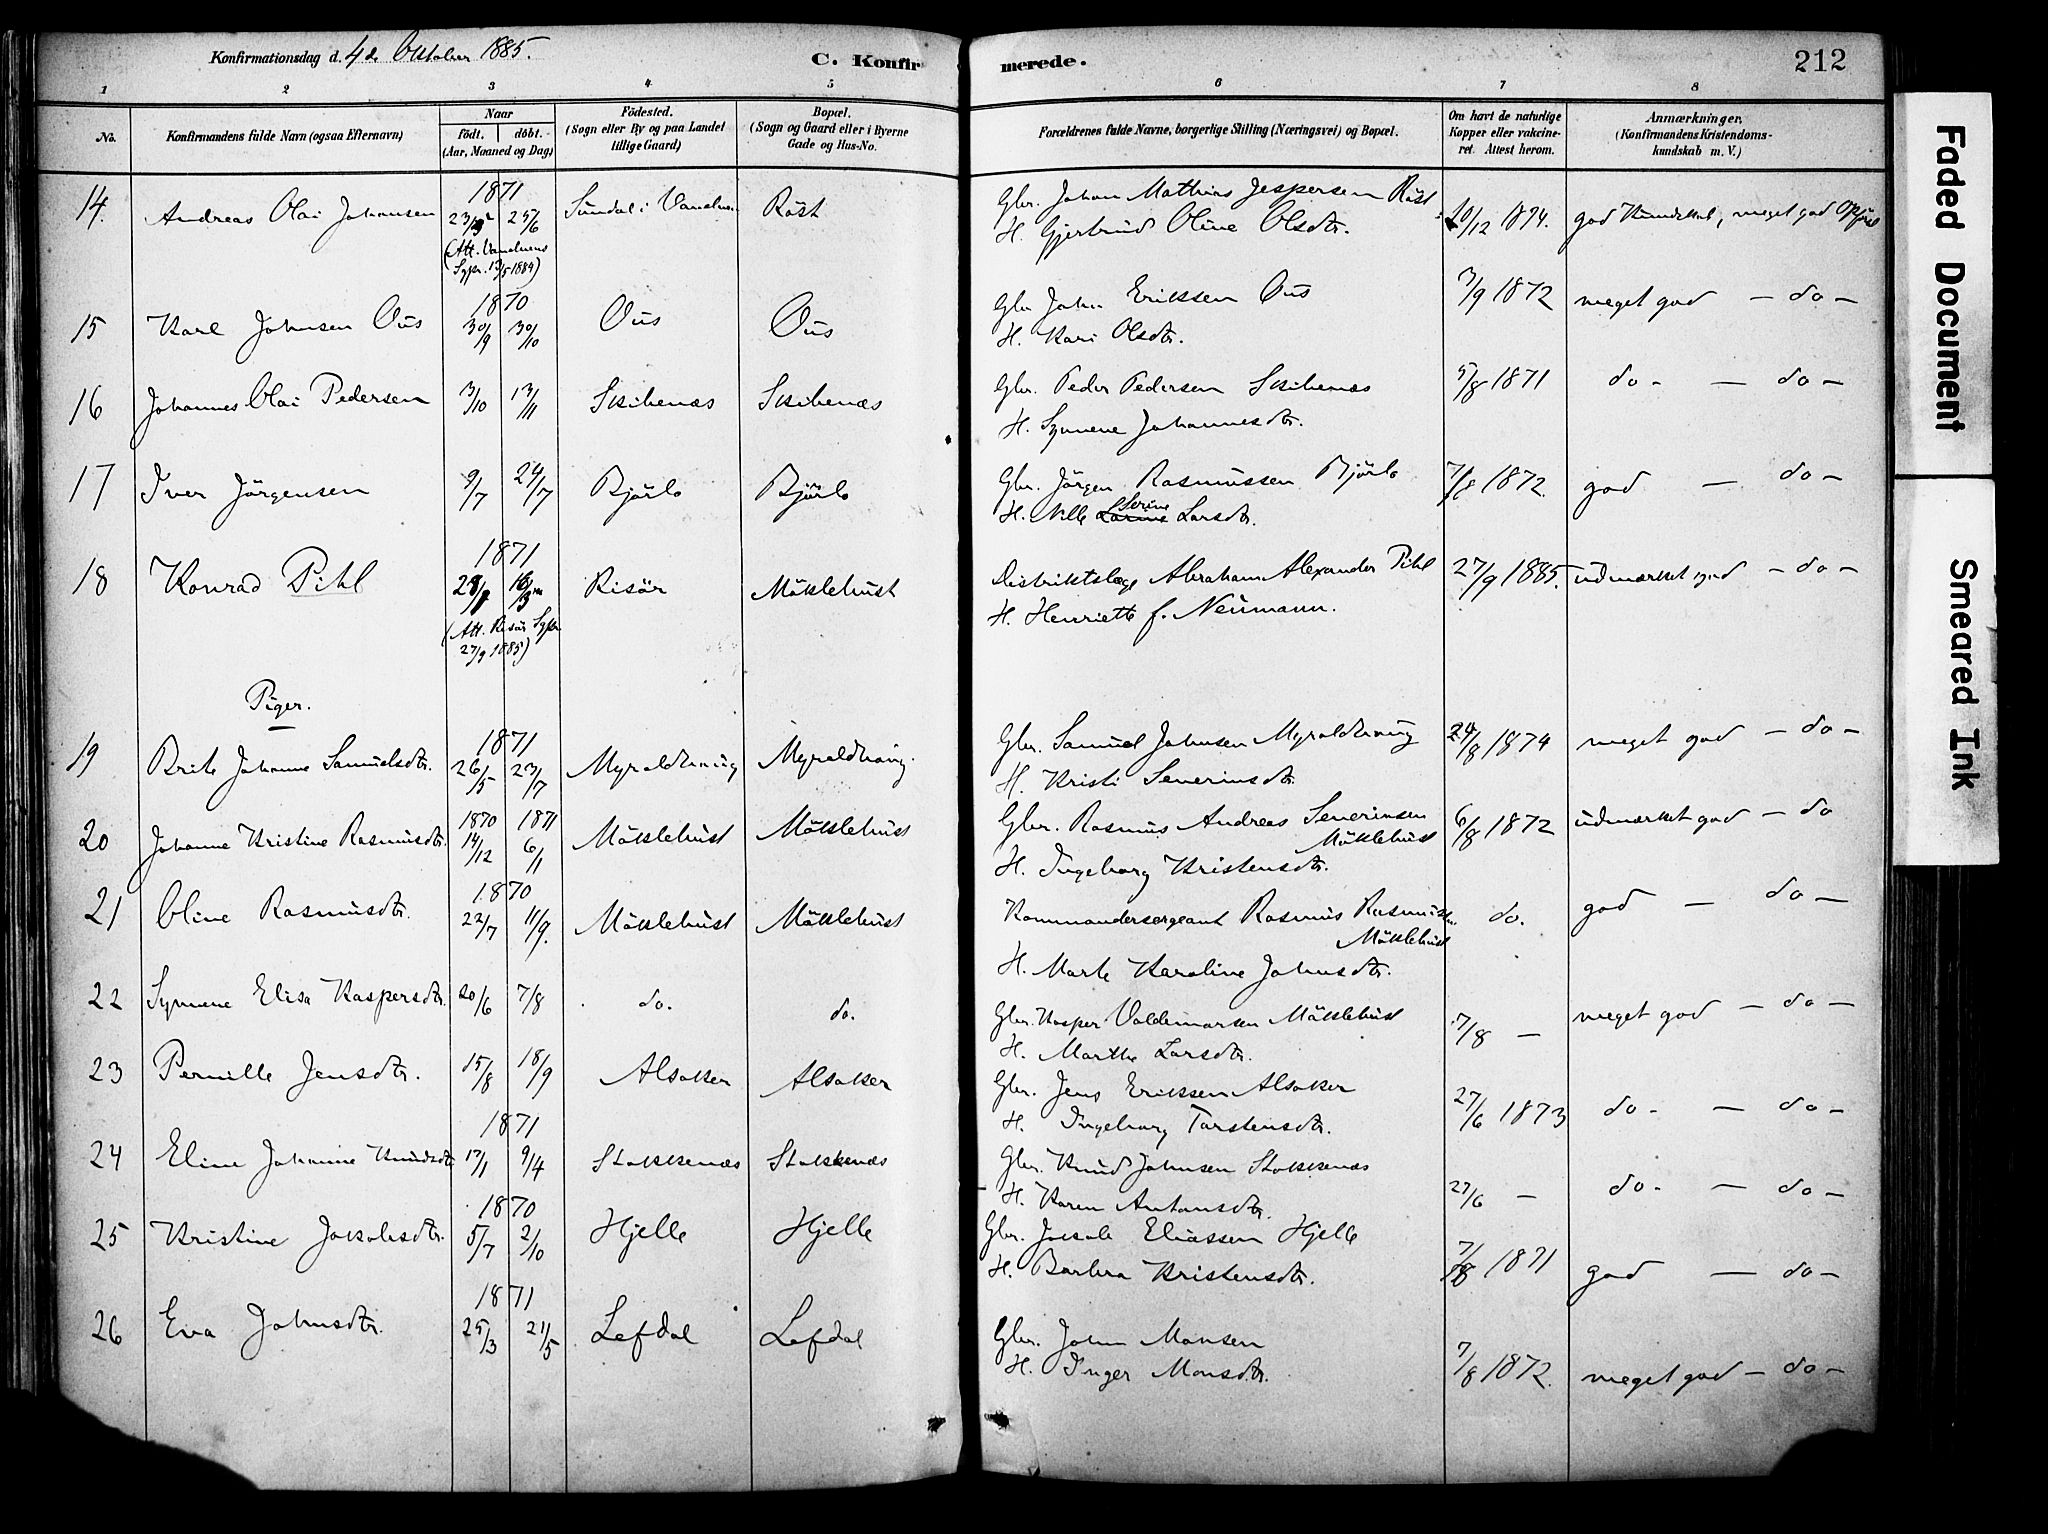 Konfirmationsdag d. 4de Oktober 1885.
C. Konfirmerede.
212
1 2 3 4 5 6 7 8
No.
Konfirmandens fulde Navn (ogsaa Efternavn)
Naar
födt. döbt.
(Aar, Maaned og Dag)
Födested.
(Sogn eller By og paa Landet
tillige Gaard)
Bopæl.
(Sogn og Gaard eller i Byerne
Gade og Hus-No.
Forældrenes fulde Navne, borgerlige Stilling (Næringsvei) og Bopæl.
Om havt de naturlige
Kopper eller vakcine-
ret. Attest herom.
Anmærkninger.
(Konfirmandens Kristendoms-
kundskab m. V.)
1871
14. Andreas Olai Johansen 25/6 Sundal i Röst Gbr. Johan Mathias Jespersen Röst
H. Gjertrud Oline Olsdtr. god Kundskab, meget god
(Att. Vanelvens
Sgpr. 1884)
1870
15 Karl Johnsen Ous 30/9 30/10 Ous Ous Gbr John Eriksen Ous 3/9 1872 meget god — do —
H. Kari Olsdtr.
16 Johannes Olai Pedersen 3/10 13/11 Skibenæs Skibenæs Gbr. Peder Pedersen Skibenæs 5/8 1871 do - — do —
H. Synneve Johannesdtr.
17 Iver Jörgensen 9/7 24/7 Bjørlo Bjørlo Gbr. Jörgen Rasmussen Bjørlo 7/8 1872. god — do —
H. Nille Serine Larsdtr.
1871
18 Konrad Pihl Risör Möklebust Distriktslæge Abraham Alexander Pihl 27/9 1885. udmærket god — do —
H. Henriette f. Neumann.
(Att. Risör Sgpr
27/9 1885)
Piger.
1871
19 Brite Johanne Samuelsdtr. 26/5 23/7 Myroldhaug Myroldhaug. Gbr. Samuel Johnsen Myroldhaug 24/8 1874 meget god — do —
H. Kristi Severinsdtr.
1870 1871
20 Johanne Kristine Rasmusdtr. 14/12 6/1 Möklebust Möklebust Gbr. Rasmus Andreas Severinsen
Möklebust 6/8 1872 udmærket god — do
H. Ingeborg Kristensdtr.
1870
21 Oline Rasmusdtr. 22/7 11/9. Möklebust Möklebust Kommandersergeant Rasmus
Möklebust do. god — do —
H. Marte Karoline Johnsdtr.
22 Synneve Elisa Kaspersdtr. 20/6 7/8 do. do. Gbr. Kasper Valdemarsen Möklebust 7/8 — meget god — do —
H. Marthe Larsdtr.
23 Pernille Jensdtr. 15/8 18/9 Alsaker Alsaker Gbr. Jens Eriksen Alsaker 27/6 1873 do - — do —
H. Ingeborg Torstensdtr.
1871
24 Eline Johanne Knudsdtr 17/1 9/4 Stokkenæs Stokkenæs Gbr. Knud Johnsen Stokkenæs 27/6 — do - — do —
H. Karen Antonsdtr.
1870
25 Kristine Jakobsdtr. 5/7 2/10 Hjelle Hjelle Gbr. Jakob Eliassen Hjelle 7/8 1871 god — do —
H. Barbra Kristensdtr.
1871
26 Eva Johnsdtr. 25/3 21/5 Lefdal Lefdal Gbr. John Monsen 7/8 1872. meget god — do —
H. Inger Monsdtr.
Faded Document
Smeared Ink